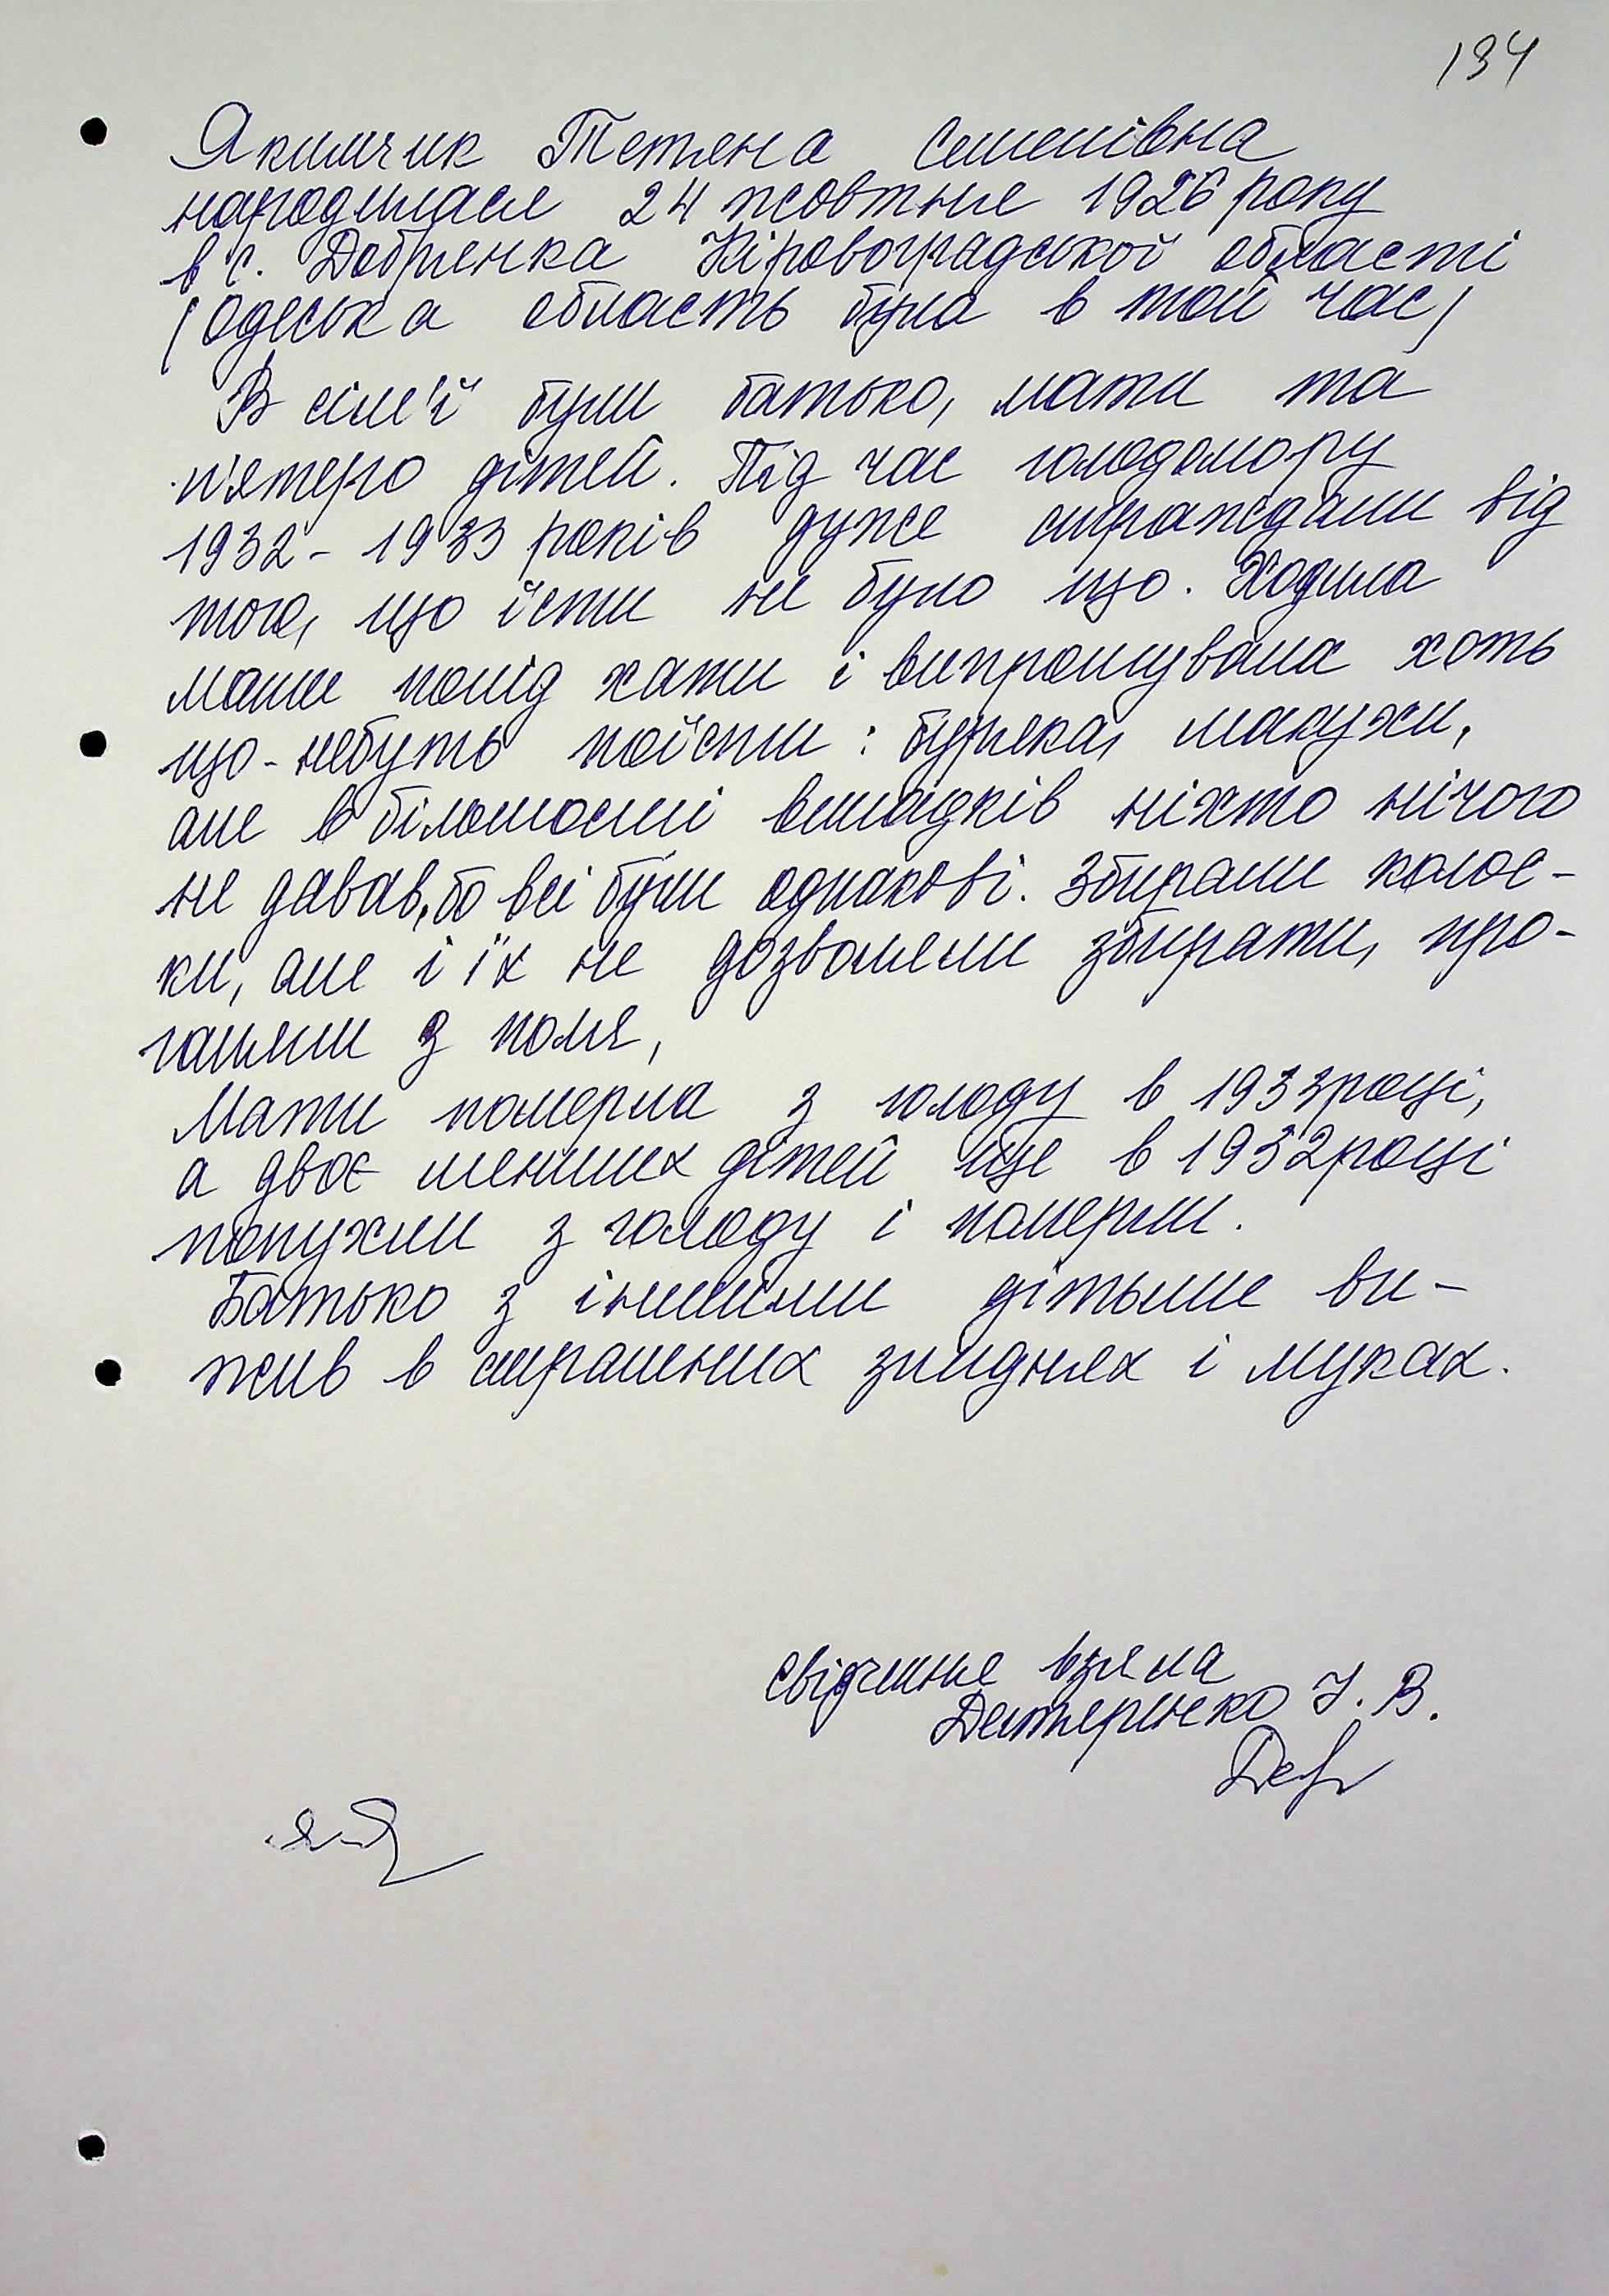 134
Якимчик Тетяна Семенівна
народилася 24 жовтня 1926 року
в с. Добрянка Кіровоградської області
(Одеська область була в той час)
В сім'ї були батько, мати та
п'ятеро дітей. Під час голодомору
1932 - 1933 років дуже страждали від
того, що їсти не було що. Ходила
мати попід хати і випрошувала хоть
що-небуть поїсти: буряка, макухи,
але в більшості випадків ніхто нічого
не давав, бо всі були однакові. Збирали колос-
ки, але і їх не дозволяли збирати, про-
ганяли з поля,
Мати померла з голоду в 1933році,
а двоє менших дітей ще в 1932році
попухли з голоду і померли.
Батько з іншими дітьми ви-
жив в страшних злиднях і муках.
свідчення взяла
І. В.